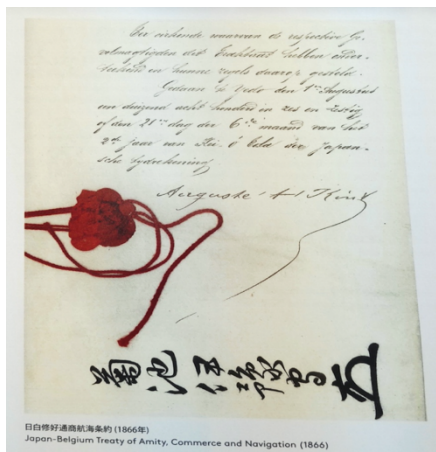 Ter oirkonde waarvan de respective Ge-
volmagtigden dit Traktaat hebben onder-
teekend en hunne zegels daarop gesteld.
Gedaan te Yedo den 1sten Augustus
een duizend acht honderd en zes en zestig
of den 21sten dag der 6de maand van het
2de jaar van Kei-ô der Japan-
sche tydrekening.
Auguste t'Kint
菊池伊豫守
日白修好通商航海条約 (1866年)
Japan-Belgium Treaty of Amity, Commerce and Navigation (1866)